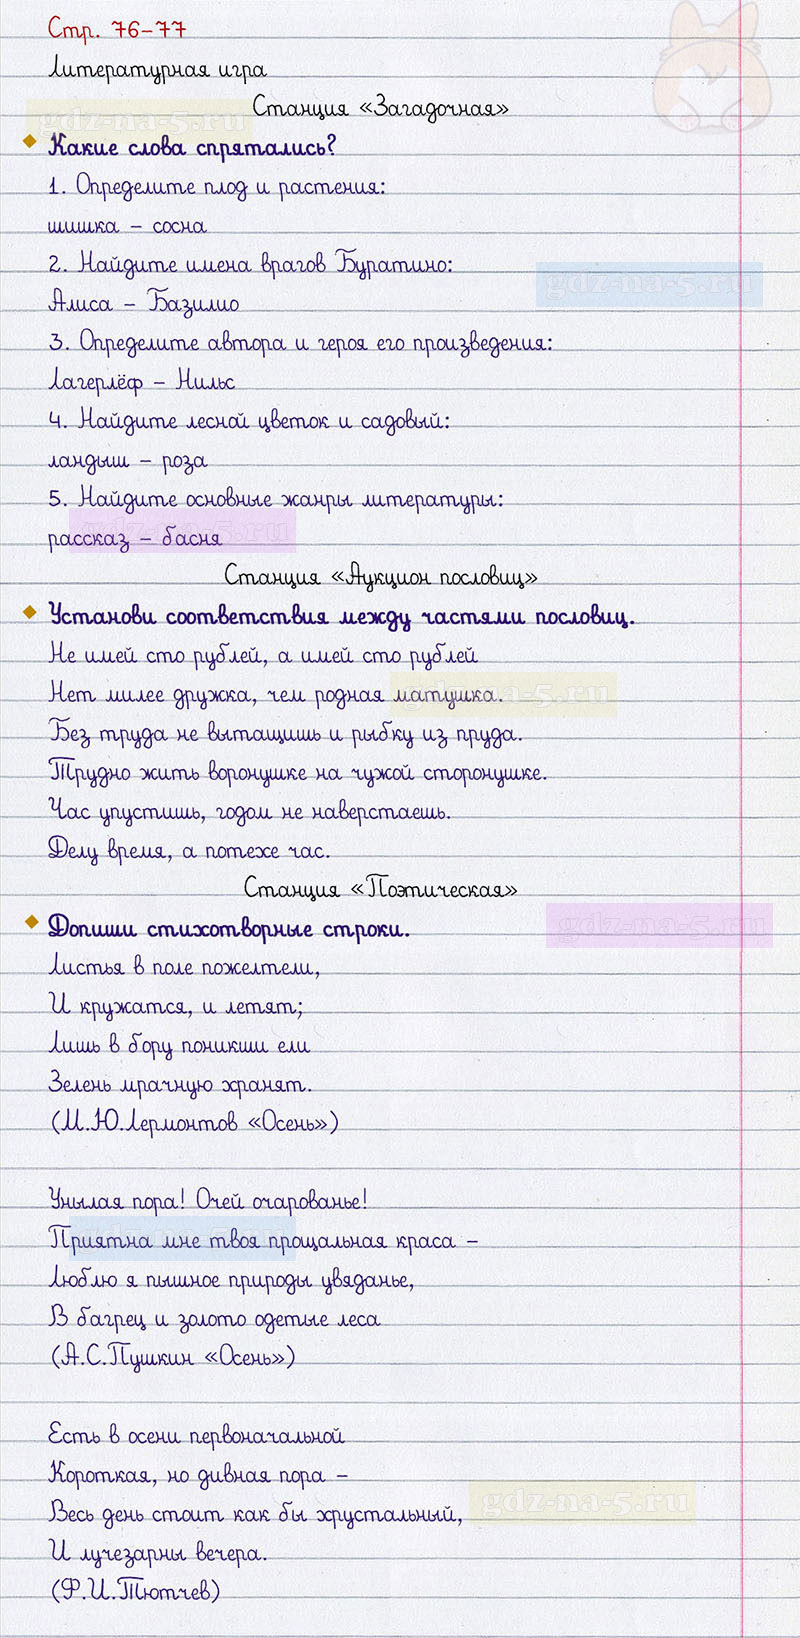 Стр. 76-77
Литературная игра
Станция «Загадочная»
gdz-na-5.ru
Какие слова спрятались?
1. Определите плод и растения:
шишка – сосна
2. Найдите имена врагов Буратино:
gdz-na-5.ru
Алиса – Базилио
3. Определите автора и героя его произведения:
Лагерлёф – Нильс
4. Найдите лесной цветок и садовый:
ландыш – роза
5. Найдите основные жанры литературы:
gdz-na-5.ru
рассказ – басня
Станция «Аукцион пословиц»
Установи соответствия между частями пословиц.
Не имей сто рублей, а имей сто рублей
Нет милее дружка, чем родная матушка.
gdz-na-5.ru
Без труда не вытащишь и рыбку из пруда.
Трудно жить воронушке на чужой сторонушке.
Час упустишь, годом не наверстаешь.
Делу время, а потехе час.
Станция «Поэтическая»
Допиши стихотворные строки.
gdz-na-5.ru
Листья в поле пожелтели,
И кружатся, и летят;
Лишь в бору поникши ели
Зелень мрачную хранят.
(М.Ю.Лермонтов «Осень»)
Унылая пора! Очей очарованье!
Приятна мне твоя прощальная краса –
gdz-na-5.ru
Люблю я пышное природы увяданье,
В багрец и золото одетые леса
(А.С.Пушкин «Осень»)
Есть в осени первоначальной
Короткая, но дивная пора –
Весь день стоит как бы хрустальный,
gdz-na-5.ru
И лучезарны вечера.
(Ф.И.Тютчев)